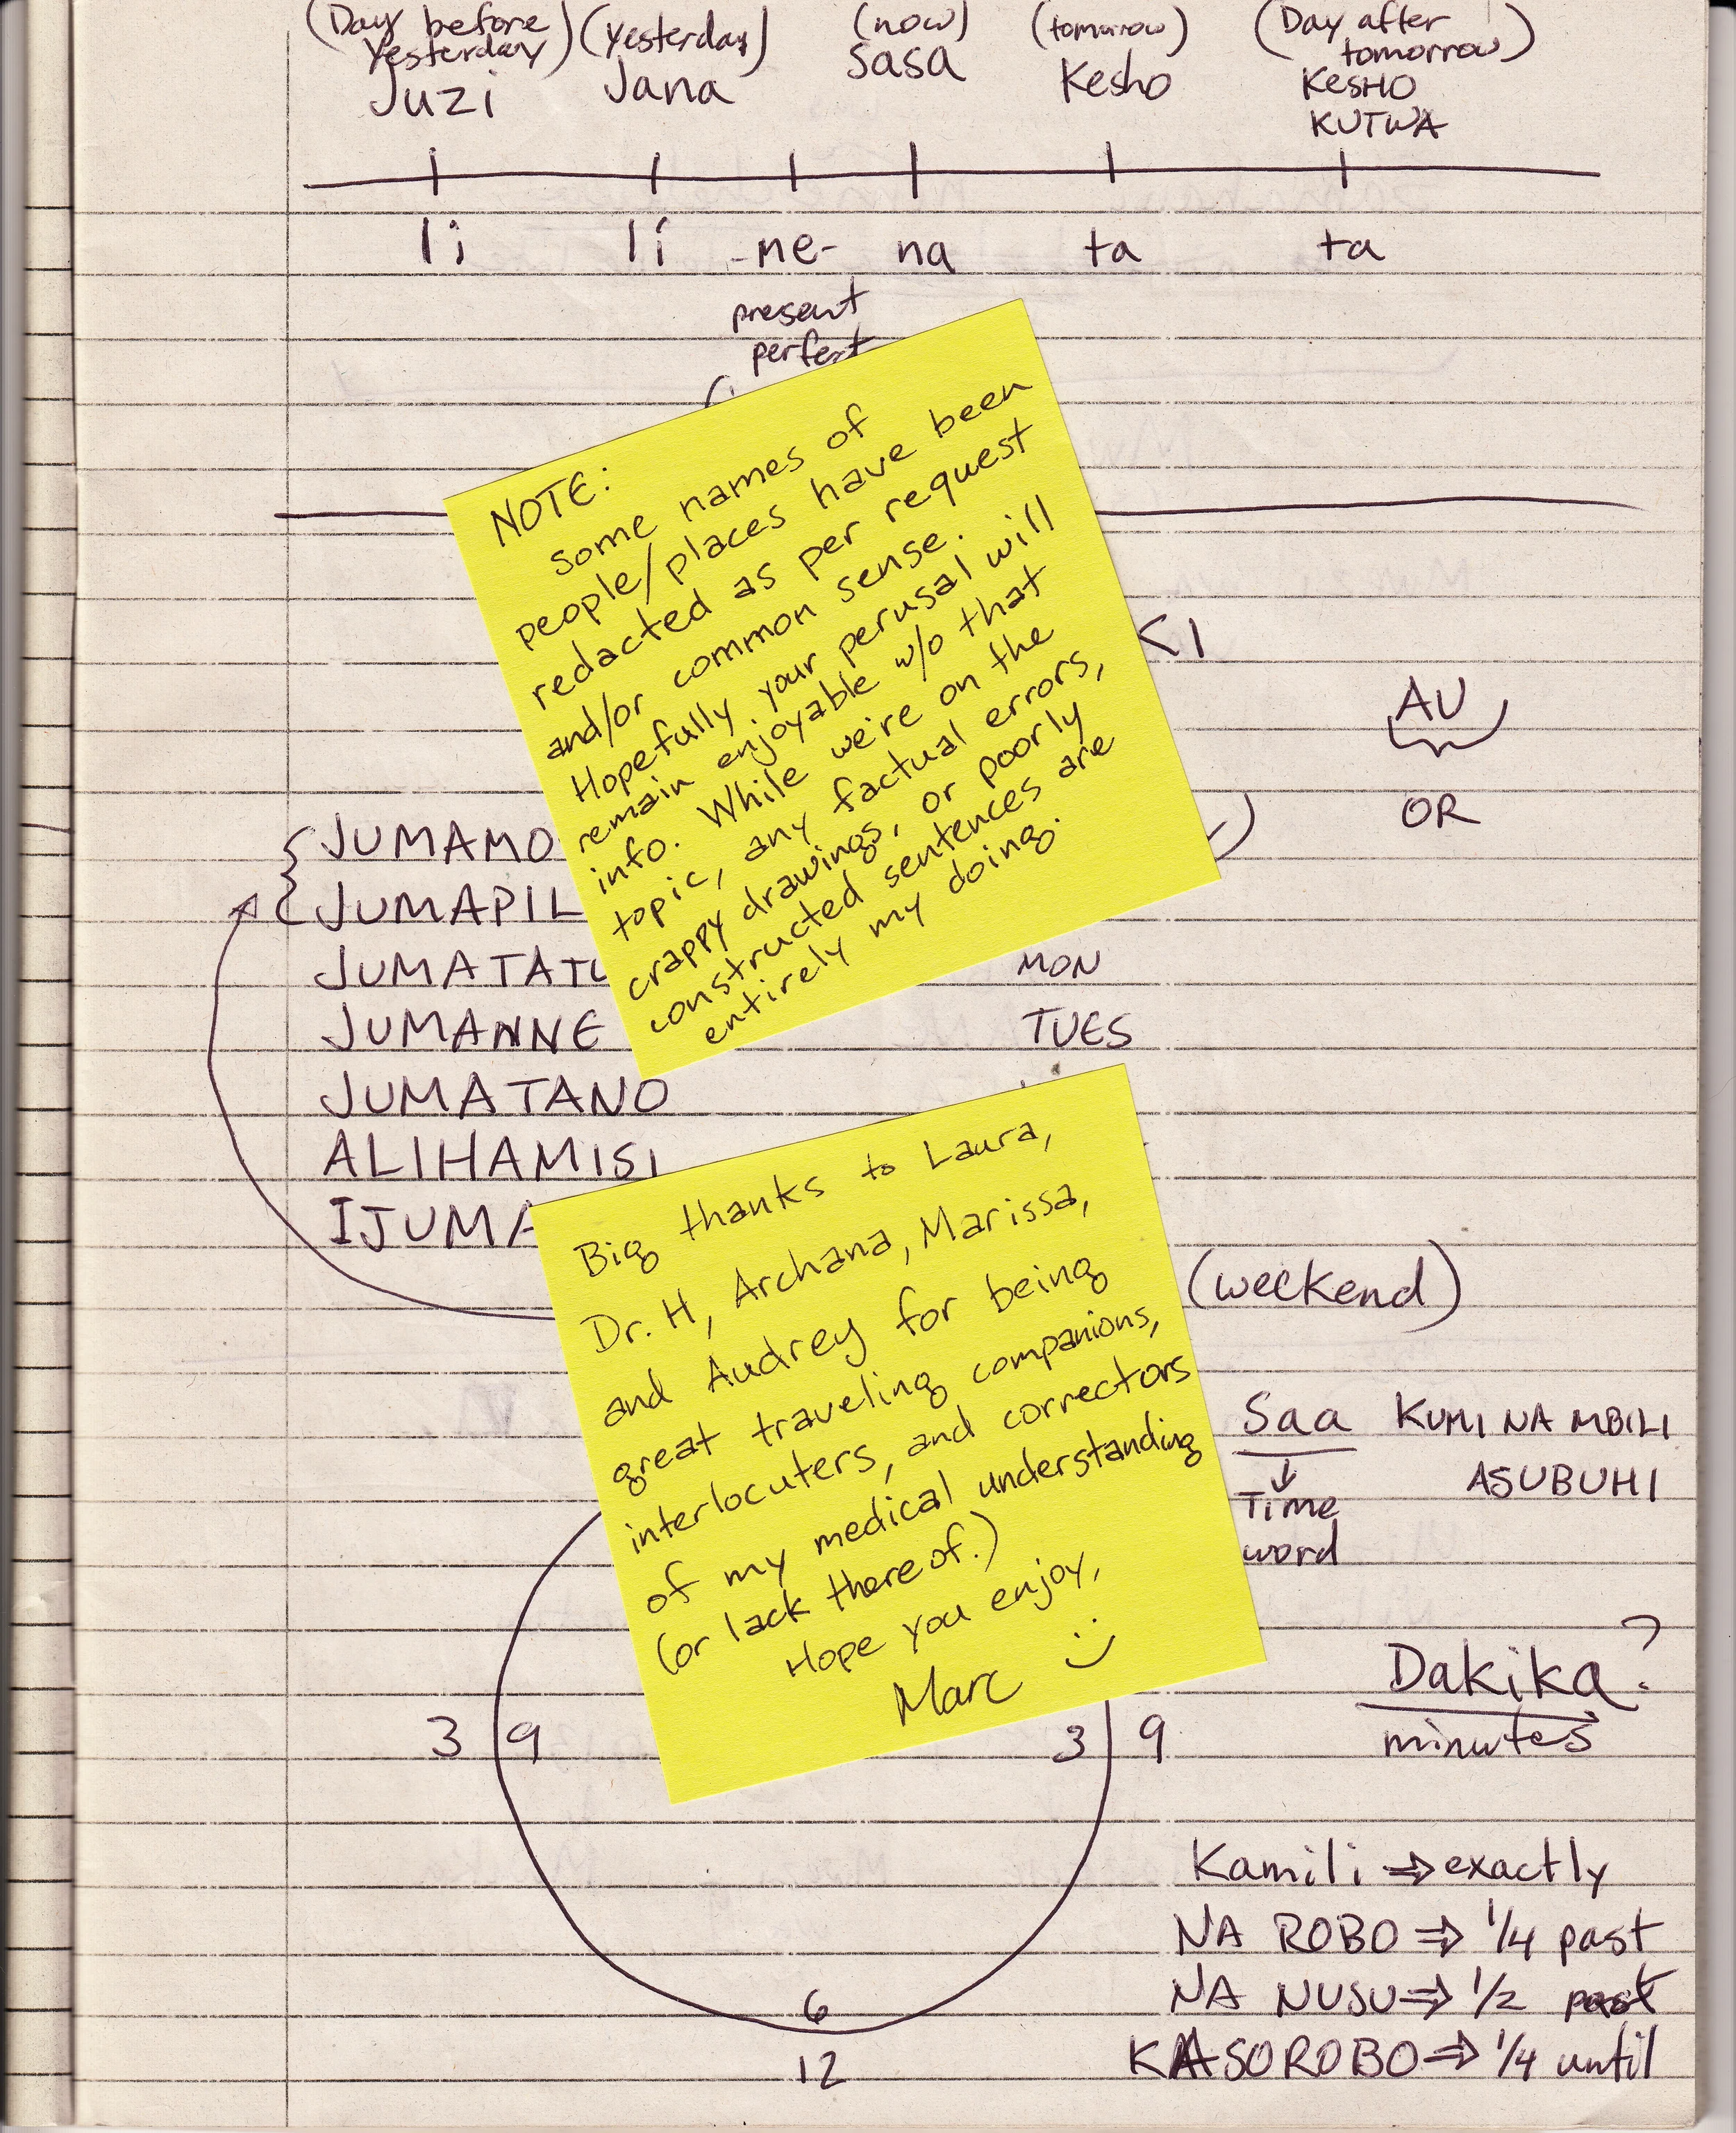 (Day before yesterday) (Yesterday) (now) (tomorrow) (Day after tomorrow)
Juzi Jana Sasa Kesho KESHO KUTWA
li li -ne- na ta ta
present
perfect
NOTE:
some names of
people/places have been
redacted as per request
and/or common sense.
Hopefully your perusal will
remain enjoyable w/o that
info. While we're on the
topic, any factual errors,
crappy drawings, or poorly
constructed sentences are
entirely my doing.
KI
AU
OR
JUMAMO
JUMAPIL
JUMATATU
MON
JUMANNE
TUES
JUMATANO
ALIHAMISI
IJUMA
(weekend)
Big thanks to Laura,
Dr. H, Archana, Marissa,
and Audrey for being
great traveling companions,
interlocuters, and correctors
of my medical understanding
(or lack thereof.)
Hope you enjoy,
Marc :)
Saa KUMI NA MBILI
ASUBUHI
Time
word
Dakika?
minutes
3 9 3 9
6
12
Kamili ⇒ exactly
NA ROBO ⇒ 1/4 past
NA NUSU ⇒ 1/2 past
KASOROBO ⇒ 1/4 until